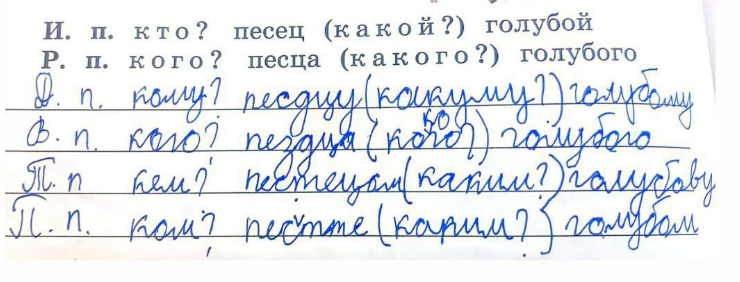 И. п. кто? песец (какой?) голубой
Р. п. кого? песца (какого?) голубого
Д. п. кому? песдцу (какуму?) голубому
В. п. кого? пездца (какого?) голубого
Т. п кем? пестецом (каким?) голубову
П. п. ком? (каким?) голубом